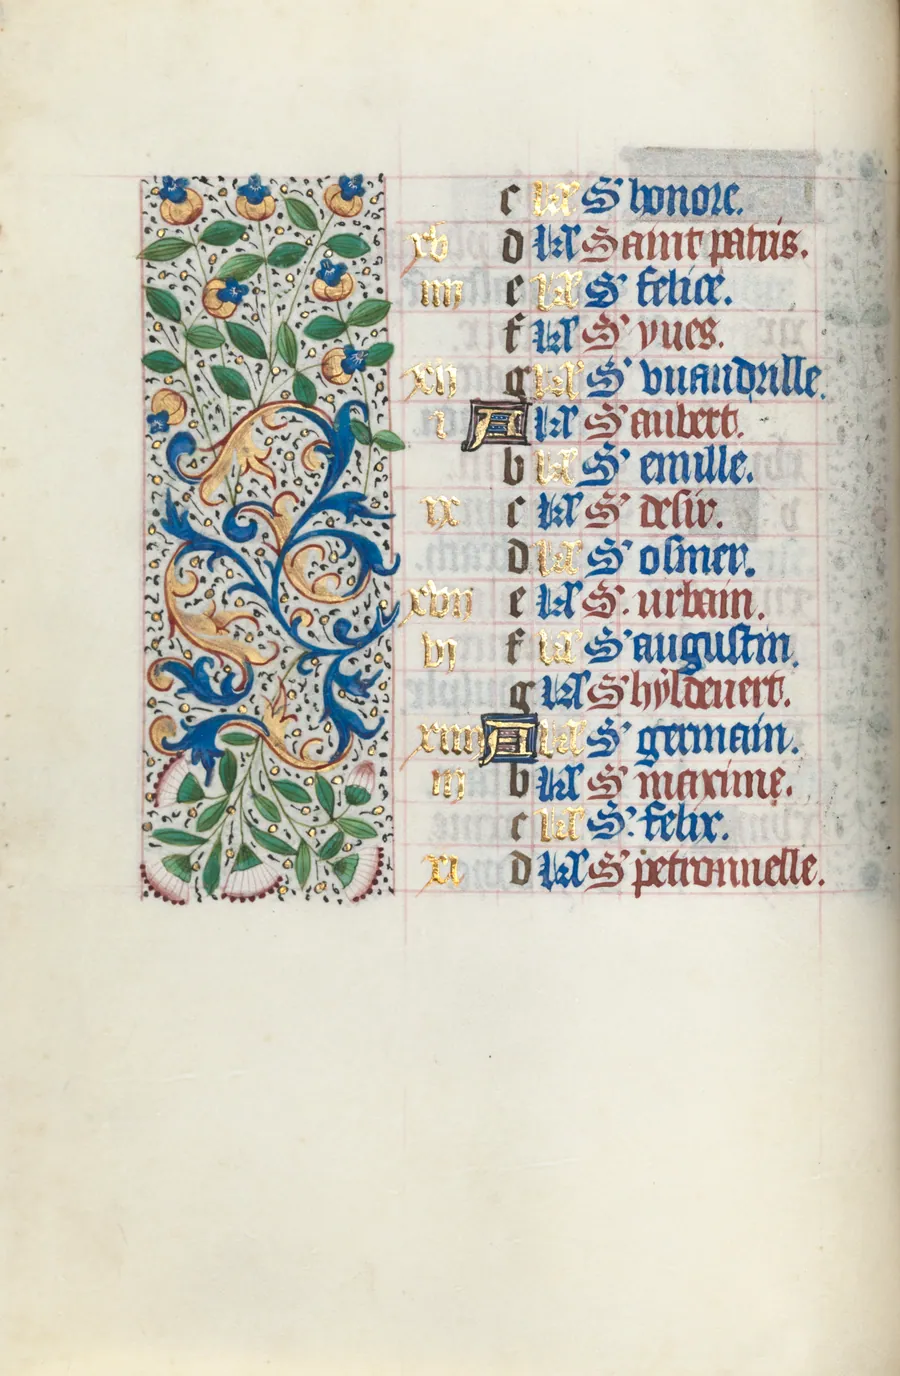 c kł S' honore.
xv d kł Saint patris.
iiij e kł S' felice.
f kł S' yues.
xij g kł S' vuandrille.
i A kł S' aubert.
b kł S' emille.
ix c kł S' desir.
d kł S' osmer.
xvij e kł S'. urbain.
vj f kł S' augustin.
g kł S' hyldeuert.
xiiij A kł S' germain.
iij b kł S' maxime.
c kł S'. felix.
xi d kł S' petronnelle.